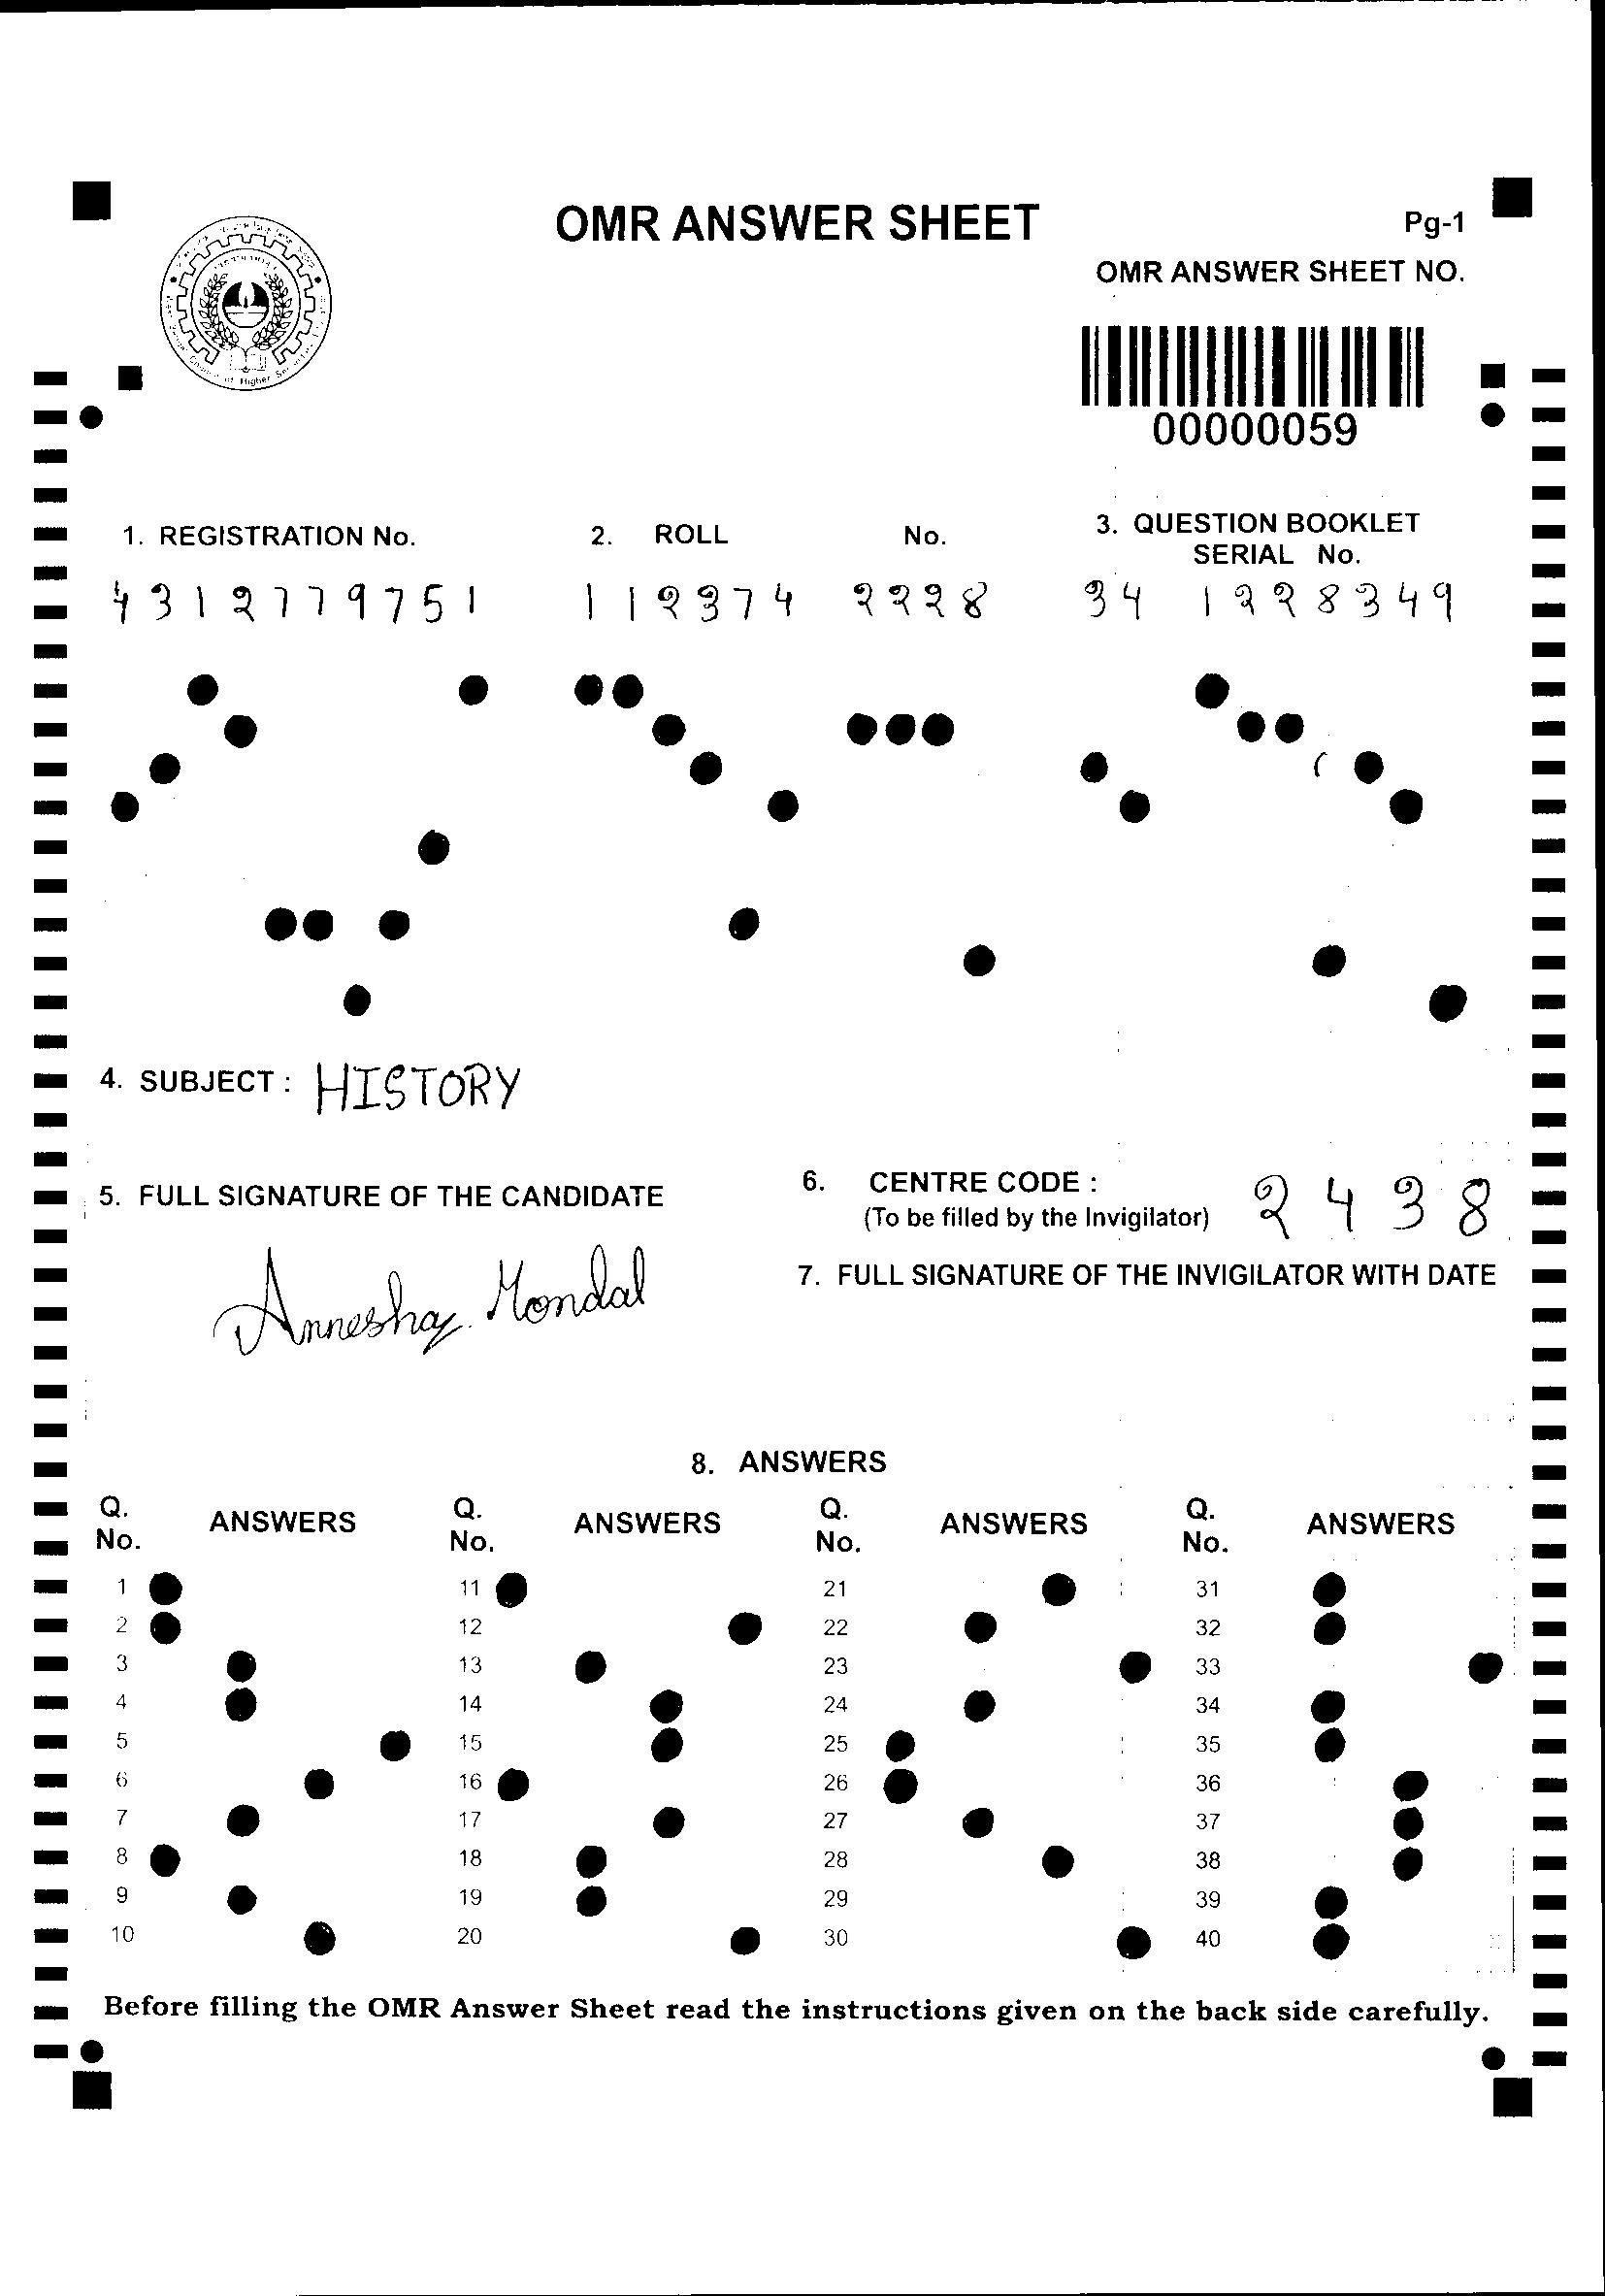 OMR ANSWER SHEET
Pg-1
OMR ANSWER SHEET NO.
00000059
1. REGISTRATION No.
2. ROLL No.
3. QUESTION BOOKLET
SERIAL No.
4312779751
112374 2228
34 1228349
4. SUBJECT : HISTORY
5. FULL SIGNATURE OF THE CANDIDATE
6. CENTRE CODE : 2438
(To be filled by the Invigilator)
7. FULL SIGNATURE OF THE INVIGILATOR WITH DATE
Mondal
8. ANSWERS
Q. No. ANSWERS Q. No. ANSWERS Q. No. ANSWERS Q. No. ANSWERS
1 11 21 31
2 12 22 32
3 13 23 33
4 14 24 34
5 15 25 35
6 16 26 36
7 17 27 37
8 18 28 38
9 19 29 39
10 20 30 40
Before filling the OMR Answer Sheet read the instructions given on the back side carefully.